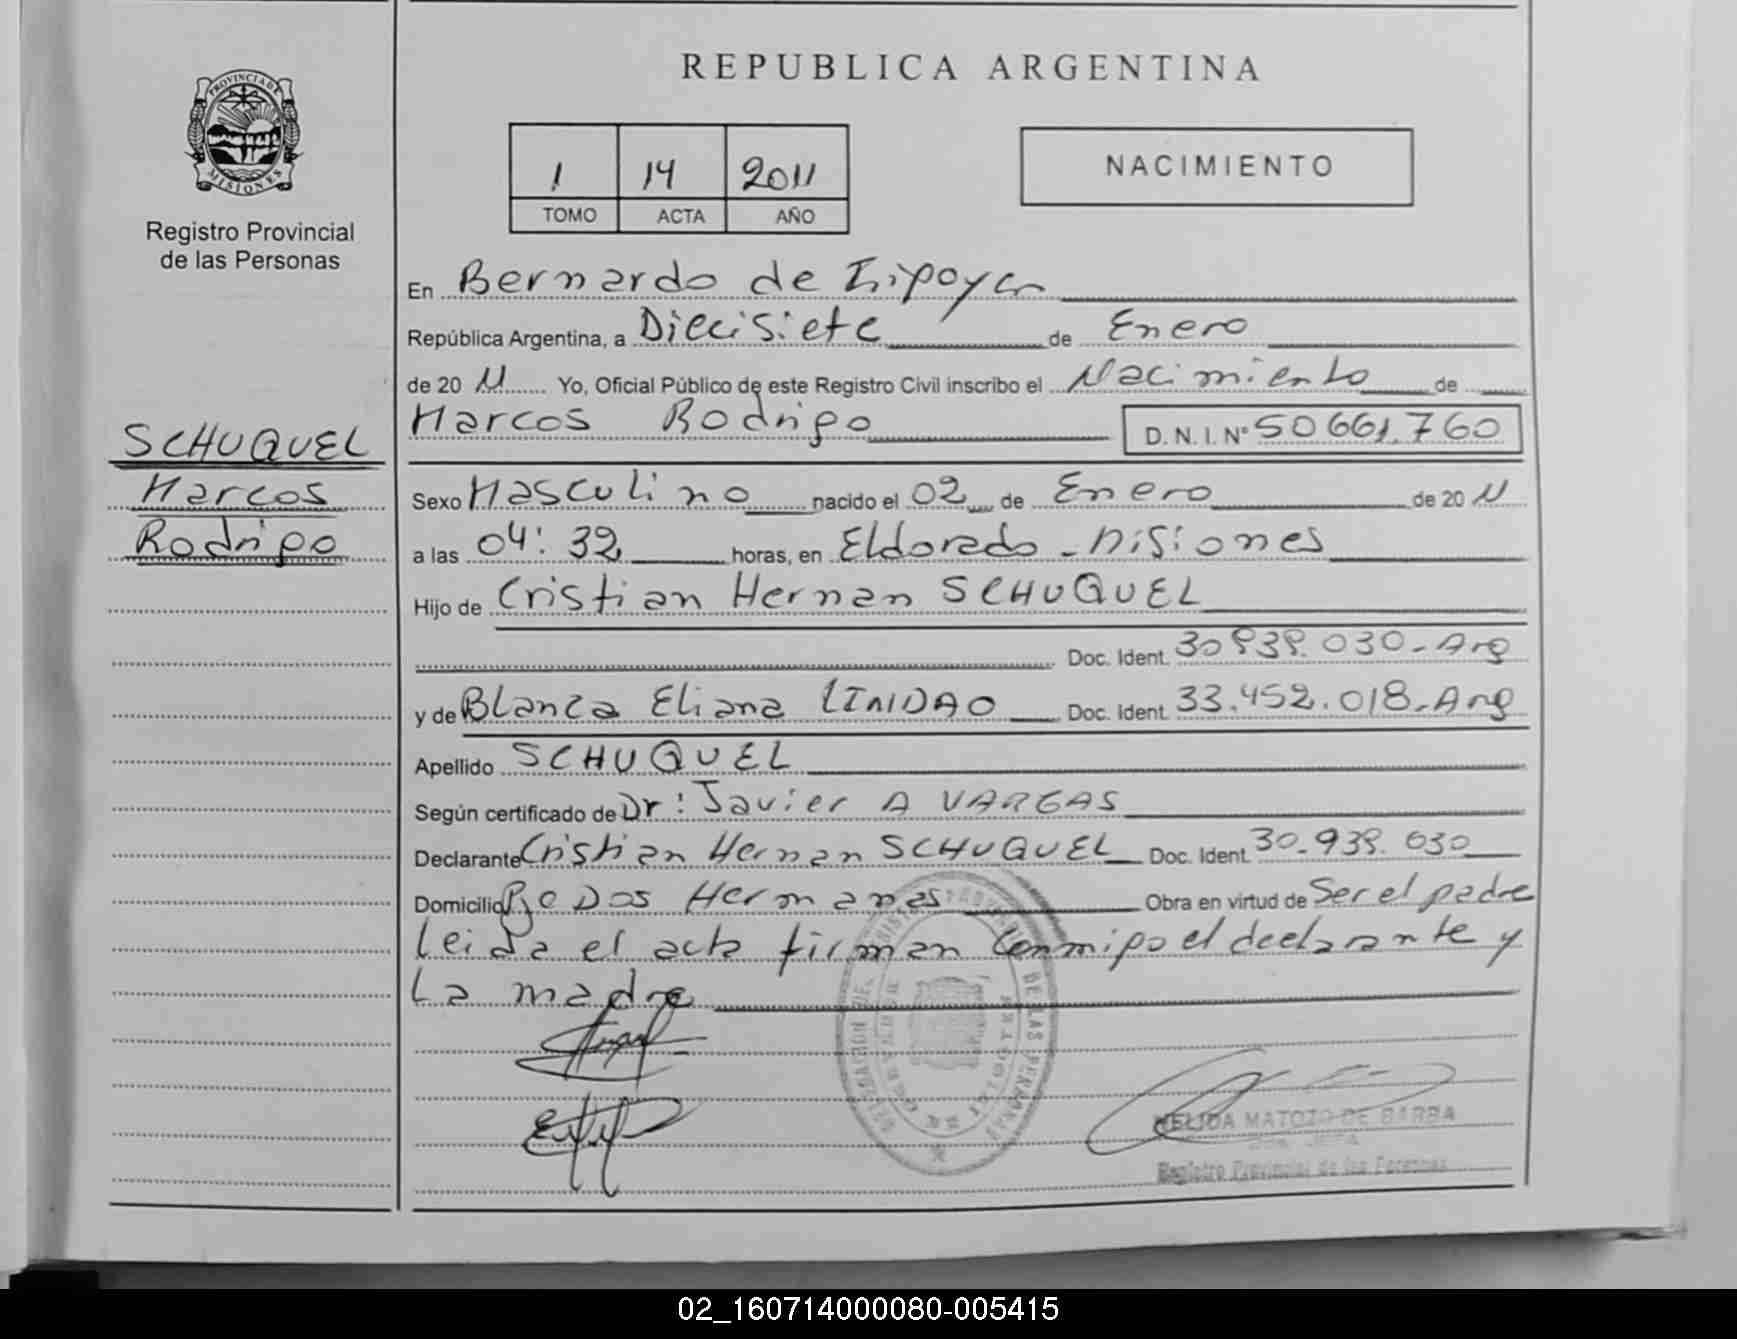 REPUBLICA ARGENTINA
PROVINCIA DE
MISIONES
Registro Provincial
de las Personas
1 14 2011
TOMO ACTA AÑO
NACIMIENTO
En Bernardo de Irigoyen
República Argentina, a Diecisiete de Enero
de 20 11 Yo, Oficial Público de este Registro Civil inscribo el Nacimiento de
Marcos Rodrigo D.N.I.Nº 50661.760
SCHUQUEL
Marcos
Rodrigo
Sexo Masculino nacido el 02 de Enero de 20 11
a las 04:32 horas, en Eldorado - Misiones
Hijo de Cristian Hernan SCHUQUEL
Doc. Ident. 30.939.030-Arg
y de Blanca Eliana Doc. Ident. 33.452.018-Arg
Apellido SCHUQUEL
Según certificado de Dr: Javier A VARGAS
Declarante Cristian Hernan SCHUQUEL Doc. Ident. 30.939.030
Domicilio Dos Hermanas Obra en virtud de Ser el padre
Leida el acta firman conmigo el declarante y
La madre
DE LAS PERSONAS
NELIDA MATOZO DE BARBA
JEFA
Registro Provincial de las Personas
02_160714000080-005415